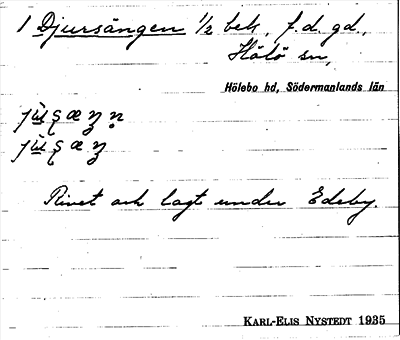 1 Djursängen 1/2 bek, f.d. gd.,
Hölö sn,
Hölebo hd, Södermanlands län
Rivet och lagt under Edeby.
KARL-ELIS NYSTEDT 1935